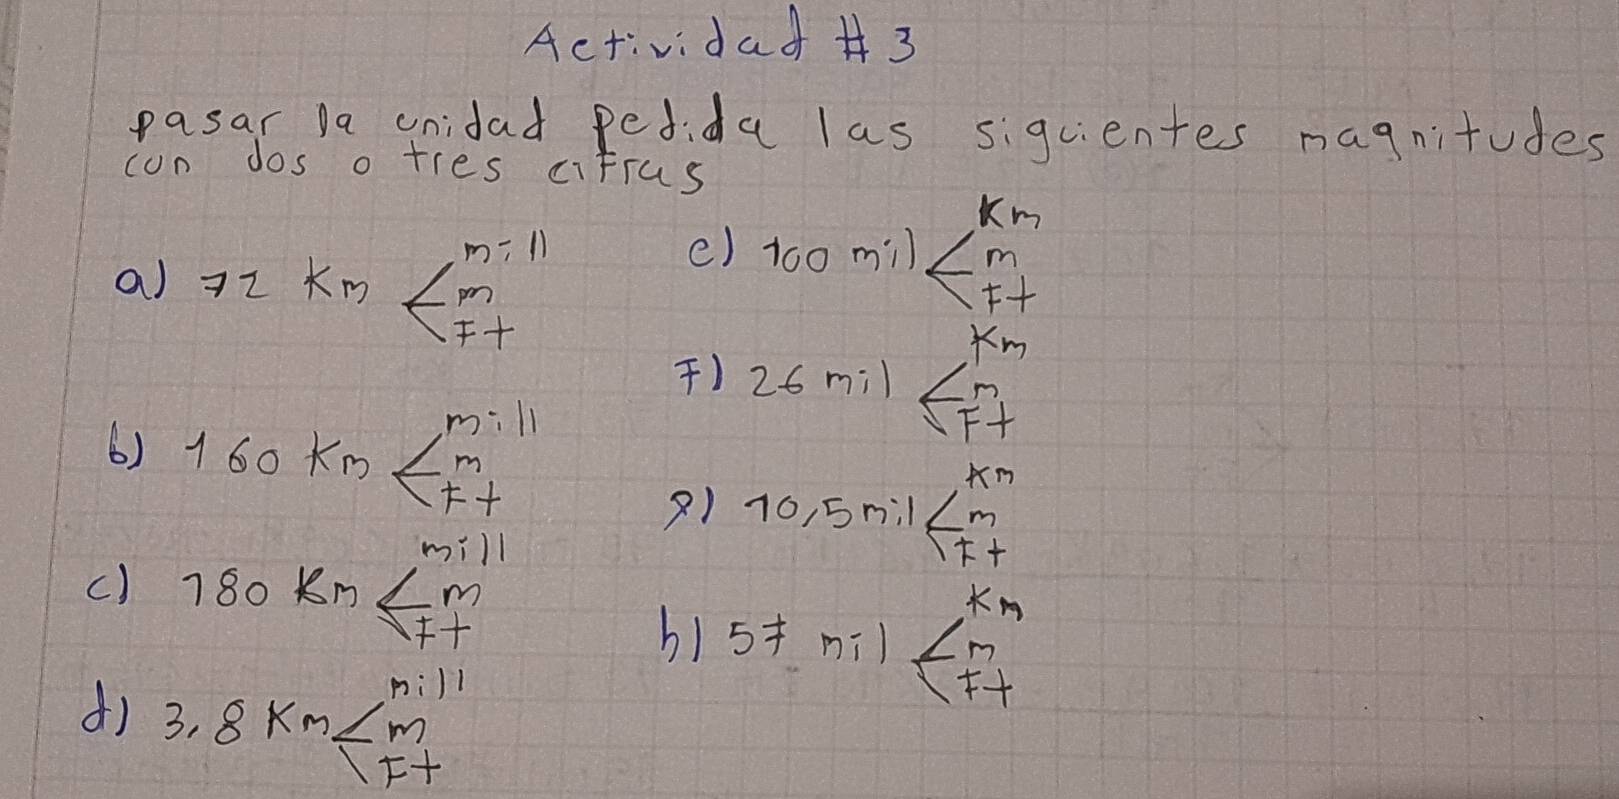 Actividad #3
pasar la unidad pedida las siguientes magnitudes
con dos o tres cifras
a) 72 Km < mill
m
Ft
b) 160 Km < mill
m
Ft
c) 180 Km < mill
m
Ft
d) 3,8 Km < mill
m
Ft
e) 100 mil < Km
m
Ft
F) 26 mil < Km
m
Ft
g) 10,5 mil < Km
m
Ft
h) 57 mil < Km
m
Ft